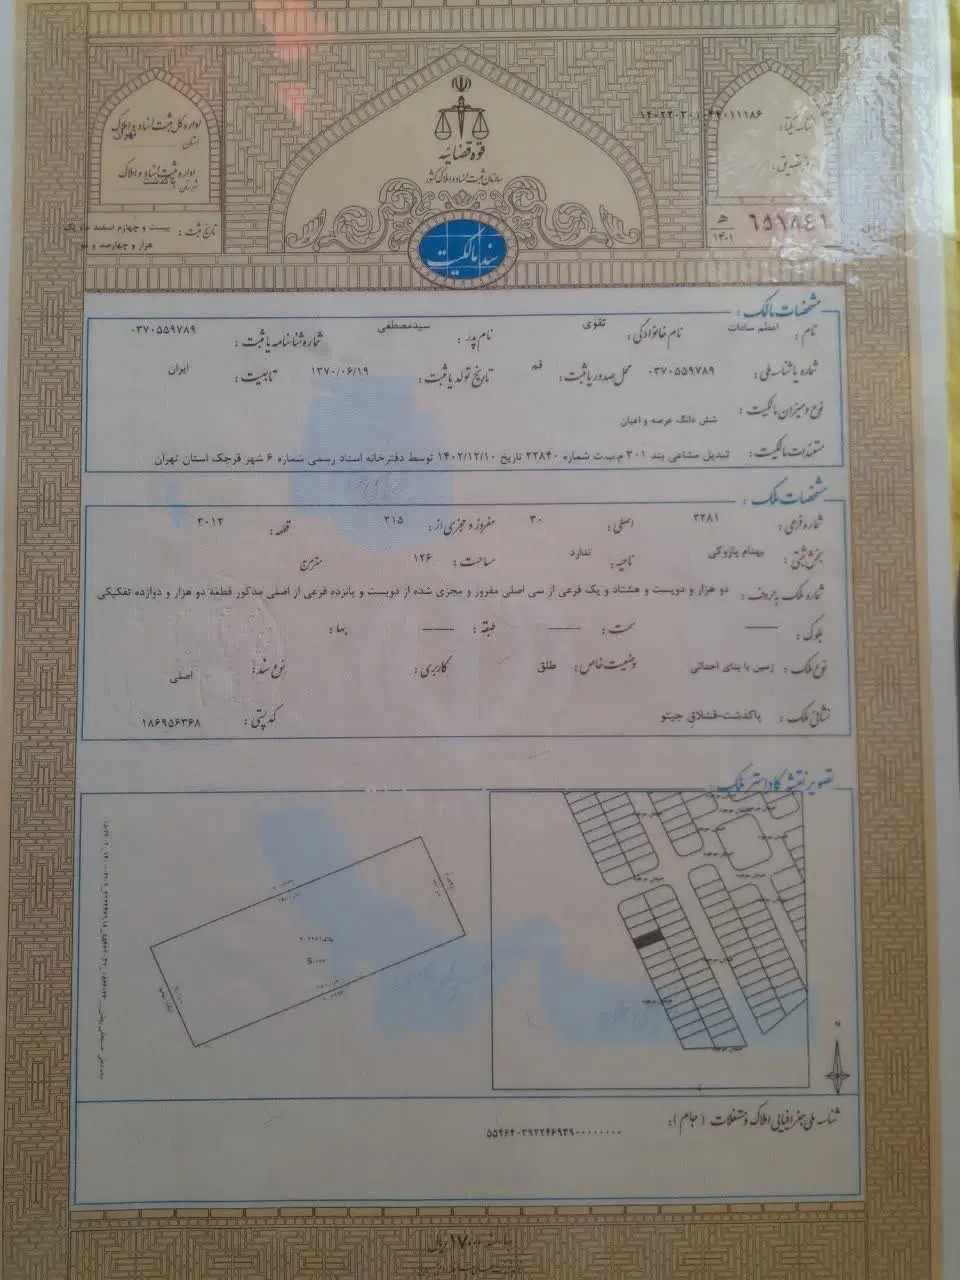 قوه قضائیه
سازمان ثبت اسناد و املاک کشور
اداره کل ثبت اسناد و املاک
استان تهران
اداره ثبت اسناد و املاک
شهرستان پاکدشت
تاریخ ثبت: بیست و چهارم اسفند ماه یک هزار و چهارصد و دو
۶۵۱۸۴۱
ه ۱۴۰۱
سند مالکیت
مشخصات مالک:
نام: اعظم سادات نام خانوادگی: تقوی نام پدر: سیدمصطفی شماره شناسنامه یا ثبت: ۰۳۷۰۵۵۹۷۸۹
شماره یا شناسه ملی: ۰۳۷۰۵۵۹۷۸۹ محل صدور یا ثبت: قم تاریخ تولد یا ثبت: ۱۳۷۰/۰۶/۱۹ تابعیت: ایران
نوع و میزان مالکیت: شش دانگ عرصه و اعیان
مستندات مالکیت: تبدیل مشاعی بند ۳۰۱ م.ب.ث شماره ۲۲۸۴۰ تاریخ ۱۴۰۲/۱۲/۱۰ توسط دفترخانه اسناد رسمی شماره ۶ شهر قرچک استان تهران
مشخصات ملک:
شماره فرعی: ۲۲۸۱ اصلی: ۳۰ مفروز و مجزی از: ۲۱۵ قطعه: ۲۰۱۲
بخش ثبتی: بهنام پازوکی ناحیه: ندارد مساحت: ۱۲۶ مترمربع
شماره ملک به حروف: دو هزار و دویست و هشتاد و یک فرعی از سی اصلی مفروز و مجزی شده از دویست و پانزده فرعی از اصلی مذکور قطعه دو هزار و دوازده تفکیکی
بلوک: —— سمت: —— طبقه: —— بها:
نوع ملک: زمین با بنای احداثی وضعیت خاص: طلق کاربری: نوع سند: اصلی
نشانی ملک: پاکدشت-قشلاق جیتو کدپستی: ۱۸۶۹۵۶۳۶۸
تصویر نقشه کاداستر ملک:
N
شناسه ملی جغرافیایی املاک و مستغلات (جام):
۵۵۴۶۴۰۳۹۲۲۴۶۹۳۹۰۰۰۰۰۰۰۰